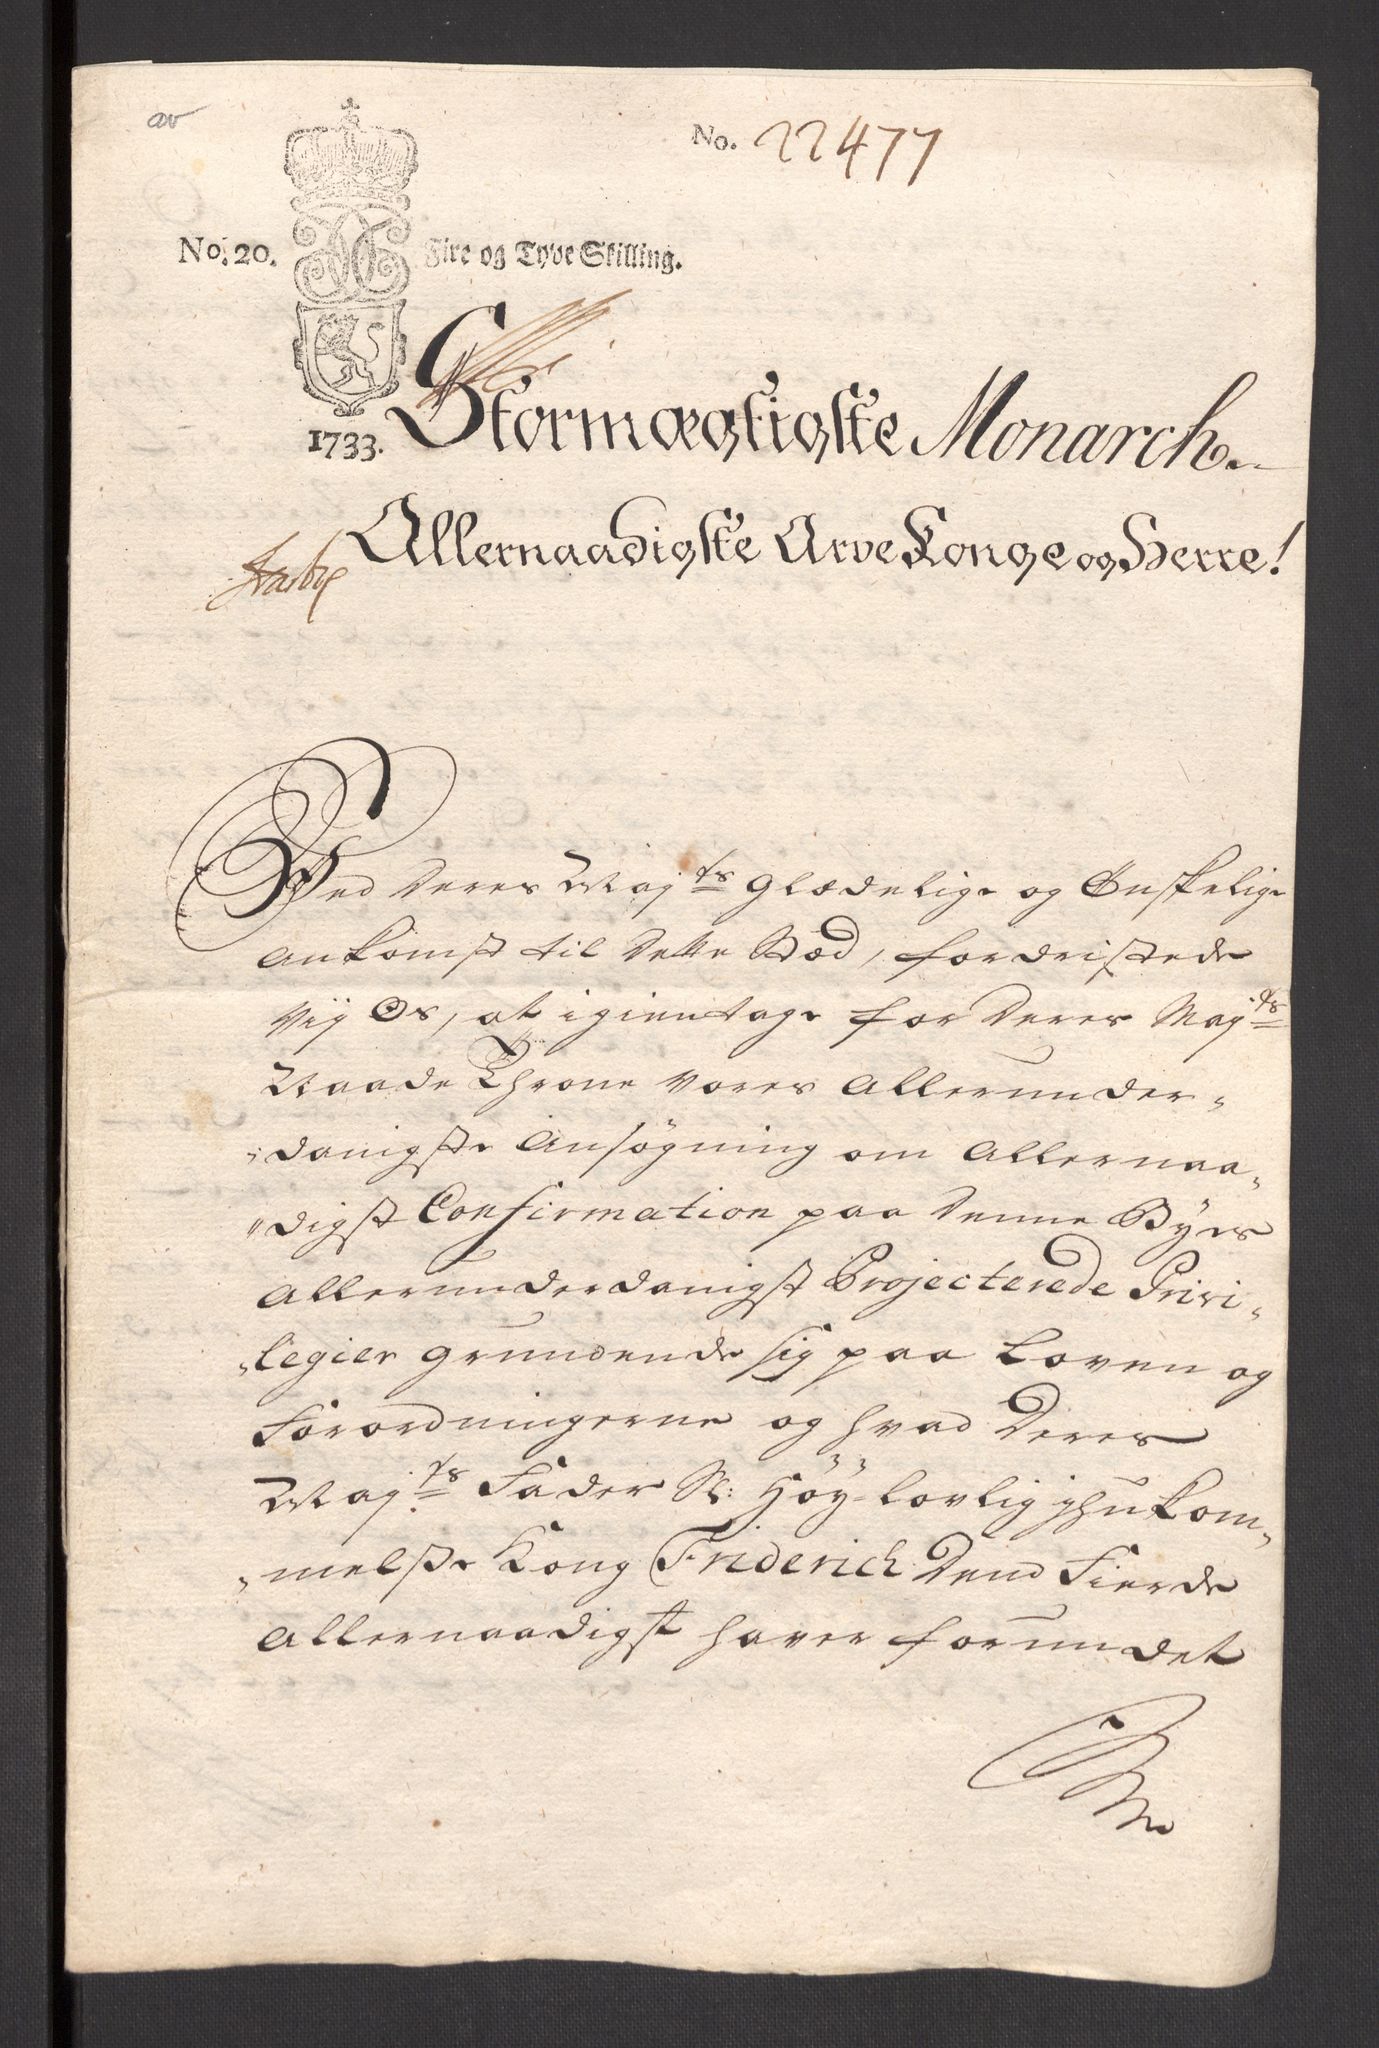 av
No. 22477
No. 20. Fire og Tyve Skilling.
1733.
Stormægtigste Monarch
Allernaadigste Arve Konge og Herre!
Ved Deres Majts Glædelige og Ønskelige
Ankomst til dette Stæd, fordristede
Vij Os, at igientage for Deres Majts
Naade Throne vores Allerunder-
danigste Ansøgning om Allernaa-
digst Confirmation paa denne Byes
Allerunderdanigst Projecterede Privi-
legier grundende sig paa Loven og
Forordningerne og hvad Deres
Majts Fader Sl: Høy-lovlig Ihukom-
melse Kong Friderich Dend Fierde
Allernaadigst haver forundet